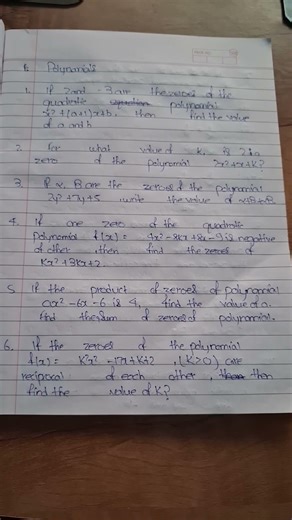 Polynomials
1. If 2 and -3 are the zeroes of the
quadratic polynomial
x² + (a+1)x + b, then find the value
of a and b
2. For what value of k, is 2 is a
zero of the polynomial 2x² + x + k?
3. If α, β are the zeroes of the polynomial
2y² + 7y + 5, write the value of α+β+αβ
4. If one zero of the quadratic
Polynomial f(x) = 4x² - 8kx + 8x - 9 is negative
of other, then find the zeroes of
Kx² + 3kx + 2.
5 If the product of zeroes of polynomial
ax² - 6x - 6 is 4, find the value of a.
Find the sum of zeroes of polynomial.
6. If the zeroes of the polynomial
f(x) = k²x² - 17x + k + 2, (k>0) are
reciprocal of each other, then
find the value of K?